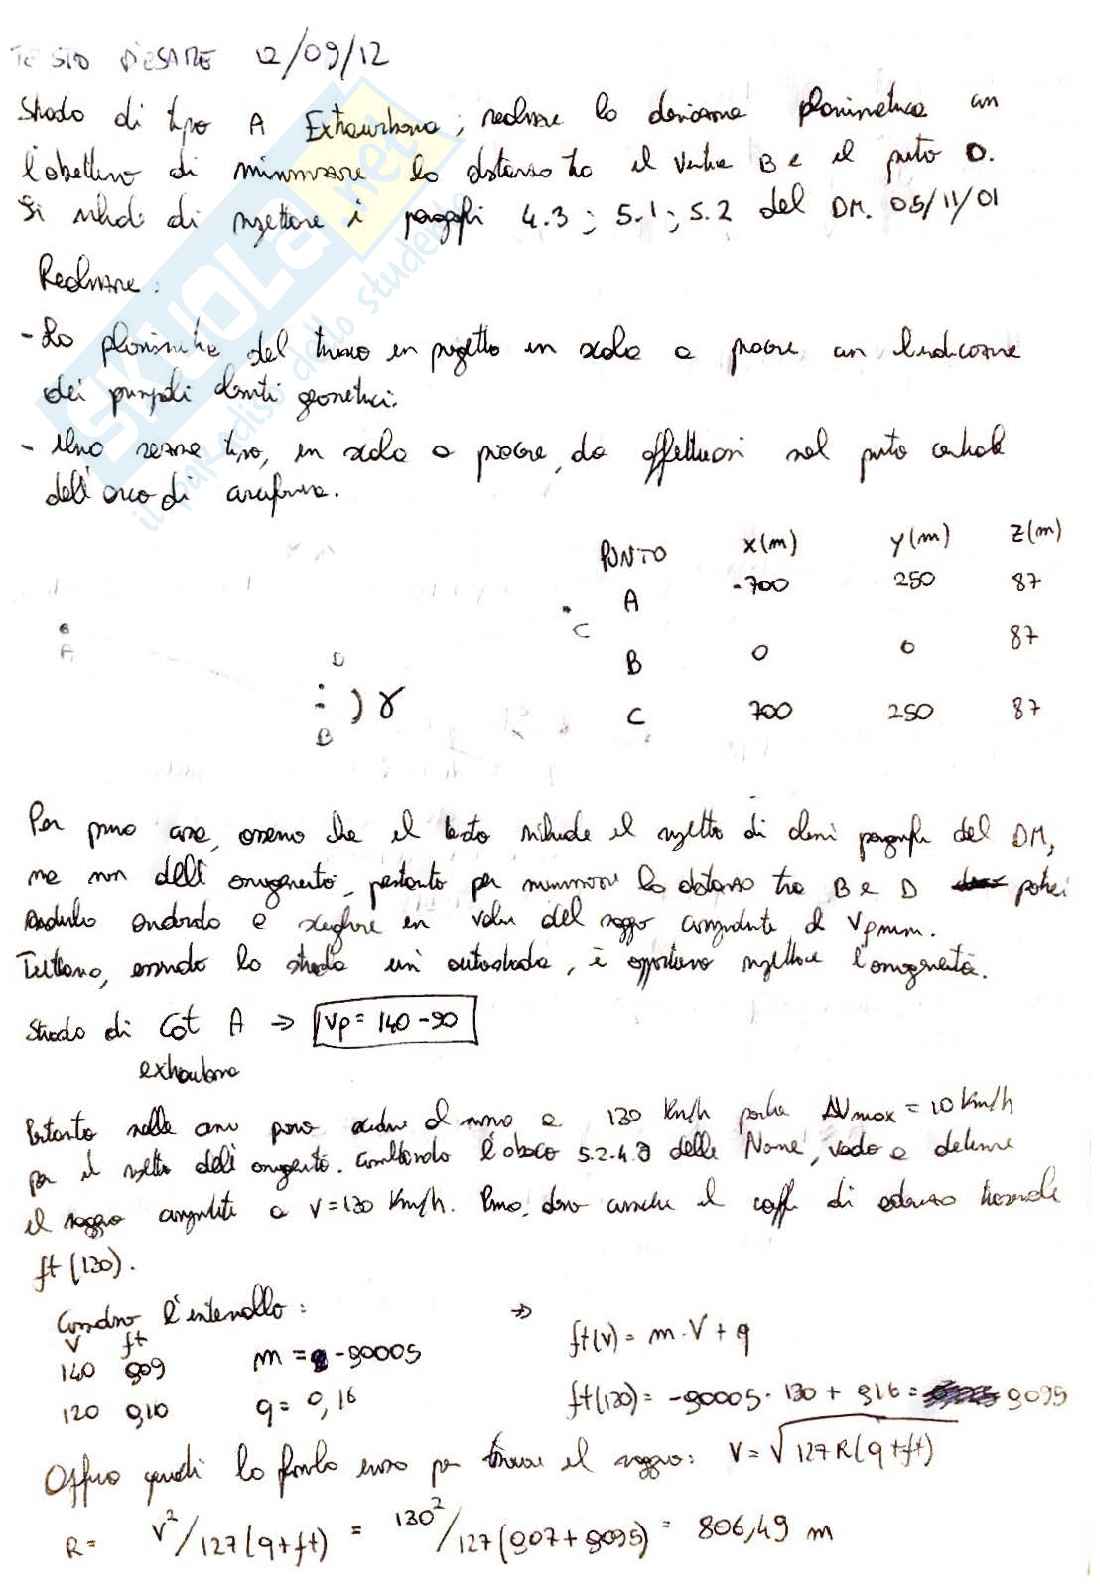 TESTO D'ESAME 12/09/12
Strada di tipo A Extraurbana; redarre la deviazione planimetrica con
l'obiettivo di minimizzare la distanza tra il vertice B e il punto D.
Si richiede di rispettare i paragrafi 4.3; 5.1; 5.2 del DM. 05/11/01
Redarre:
- La planimetria del tracciato in progetto in scala a piacere, con l'indicazione
dei principali elementi geometrici.
- Una sezione tipo, in scala a piacere, da effettuarsi nel punto centrale
dell'arco di circonferenza.
PUNTO x(m) y(m) z(m)
A -700 250 87
B 0 0 87
C 700 250 87
A
C
D
) γ
B
Per prima cosa, osservo che il testo richiede il rispetto di alcuni paragrafi del DM,
ma non dell'omogeneità, pertanto per minimizzare la distanza tra B e D potrei
andare e scegliere un valore del raggio corrispondente a Vpmin.
Tuttavia, essendo la strada un'autostrada, è opportuno rispettare l'omogeneità.
Strada di Cat A ⇒ Vp = 140-90
extraurbana
Pertanto nella curva posso scendere al minimo a 130 Km/h perché ΔVmax = 10 Km/h
per il rispetto dell'omogeneità. Consultando l'abaco 5.2.4.a delle Norme, vado a determinare
il raggio corrispondente a V=130 Km/h. Prima, devo calcolare il coeff di aderenza trasversale
ft(130).
Considero l'intervallo:
V ft
140 0,09
120 0,10
m = -0,0005
q = 0,16
⇒ ft(v) = m·V + q
ft(130) = -0,0005·130 + 0,16 = 0,095
Applico quindi la formula inversa per trovare il raggio: V = √127R(q+ft)
R = V²/127(q+ft) = 130²/127(0,07+0,095) = 806,49 m
skuola.net
il paradiso dello studente